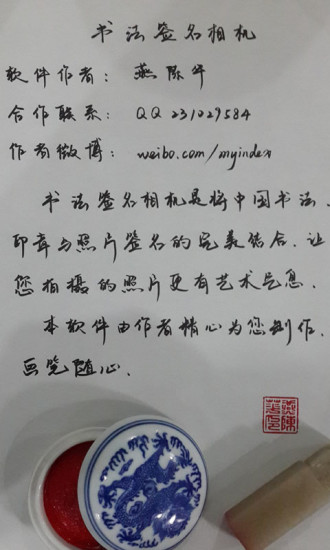 书法签名相机
软件作者：燕陈华
合作联系：QQ 231029584
作者微博：weibo.com/myindex
书法签名相机是将中国书法、
印章与照片签名的完美结合．让
您拍摄的照片更有艺术气息．
本软件由作者精心为您制作．
画笔随心．